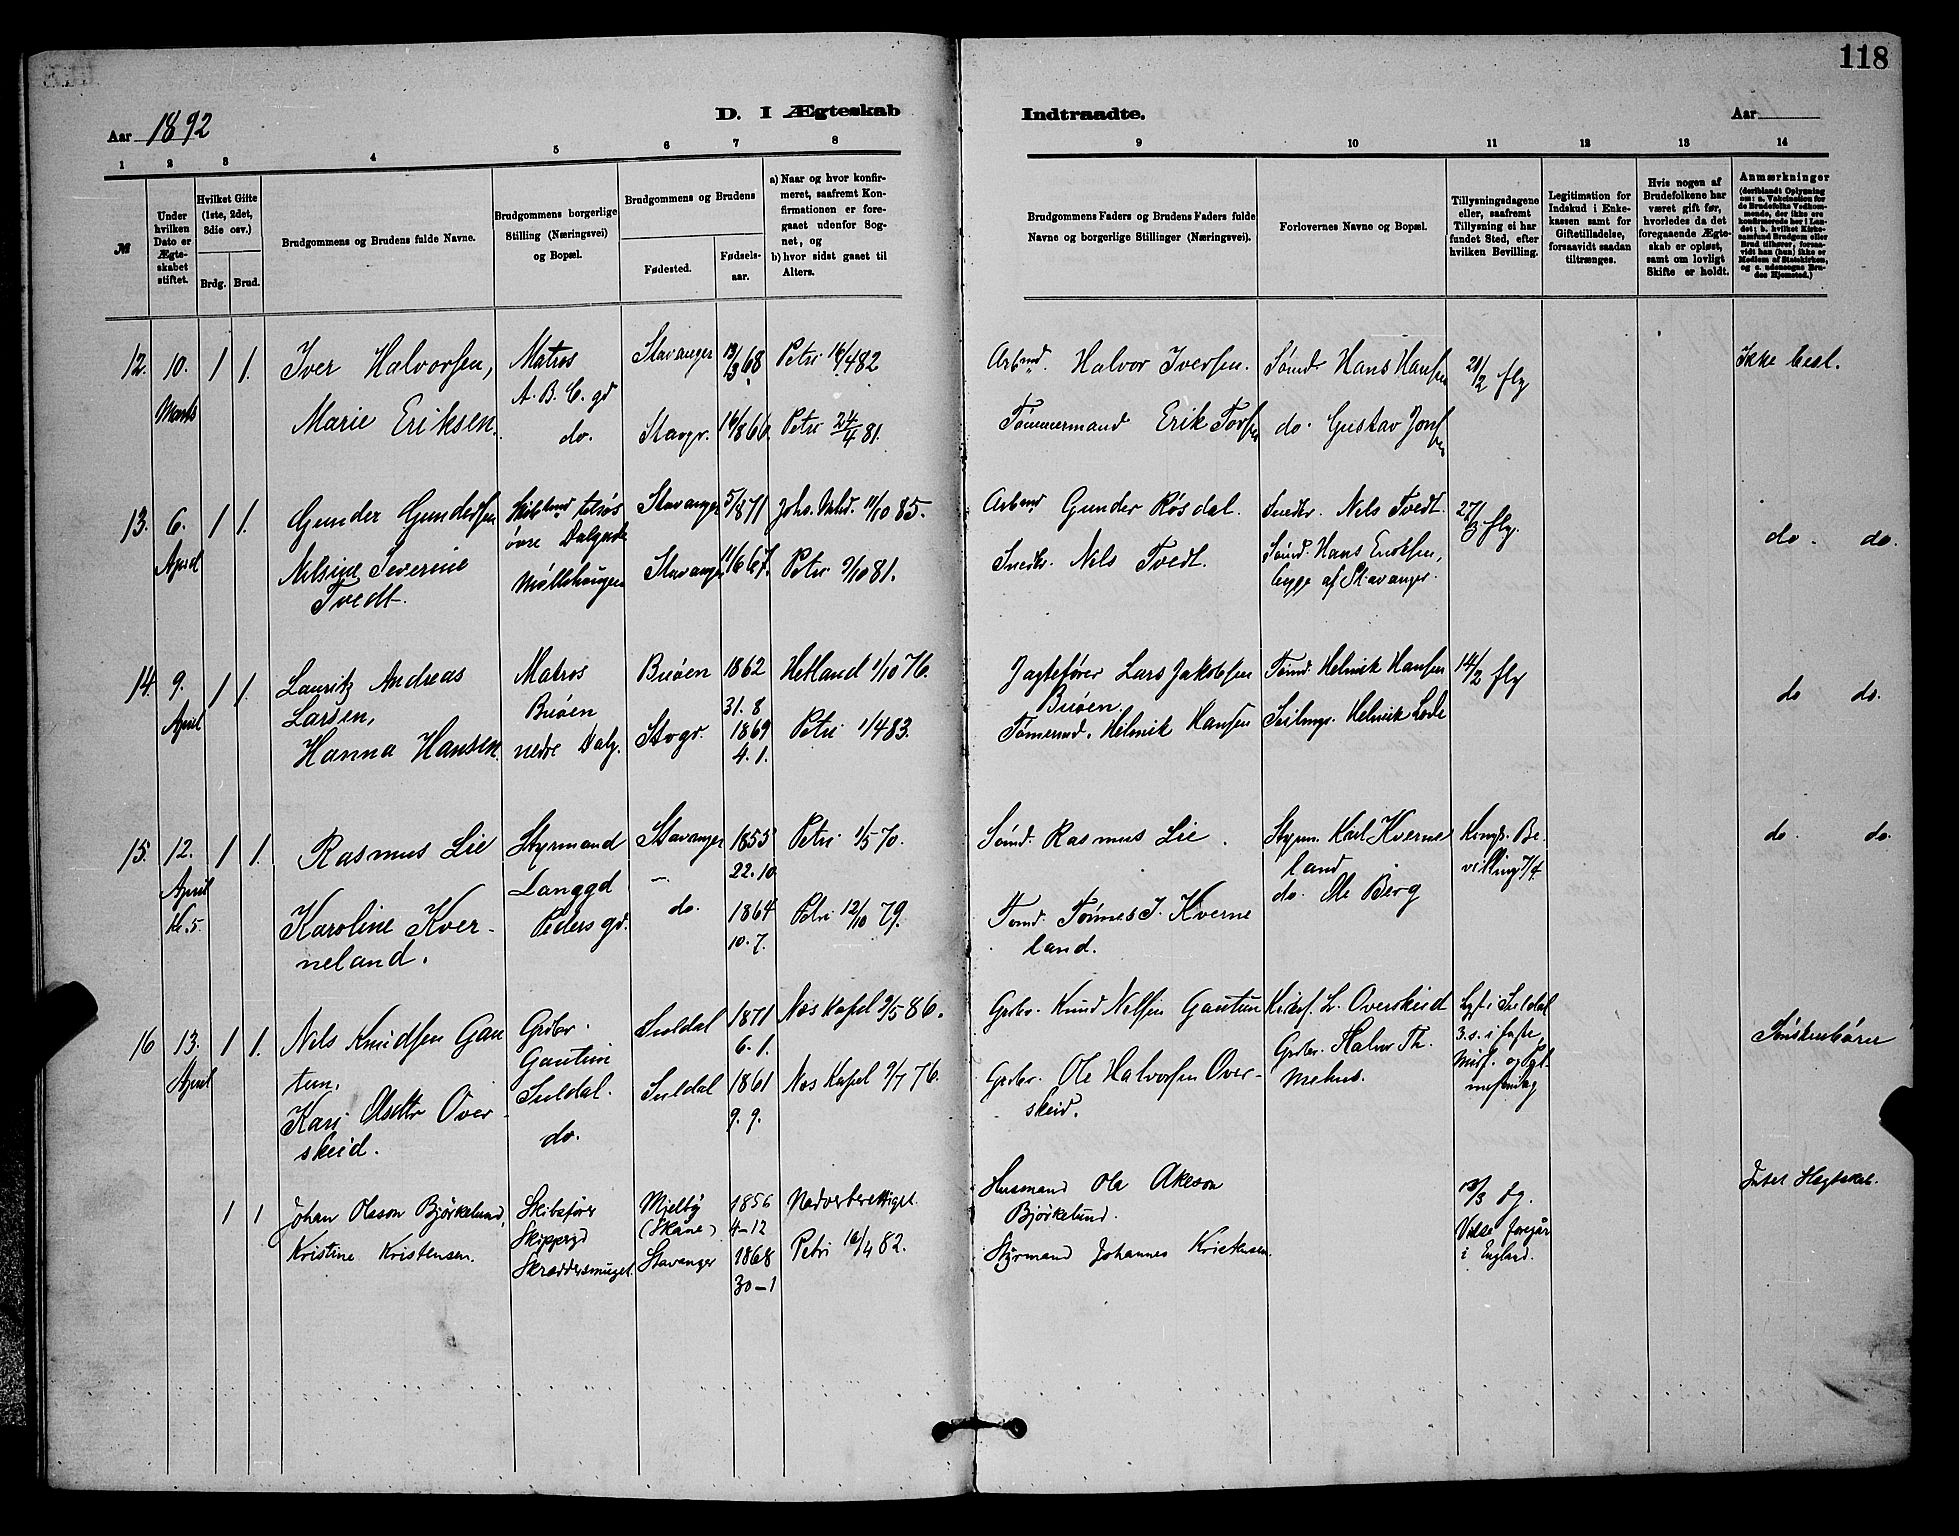 118
Aar 1892
D. I Ægteskab
Indtraadte.
Aar
1 2 3 4 5 6 7 8 9 10 11 12 13 14
№
Under hvilken Dato er Ægteskabet stiftet.
Hvilket Gifte (1ste, 2det, 3die osv.)
Brdg. Brud.
Brudgommens og Brudens fulde Navne.
Brudgommens borgerlige Stilling (Næringsvei) og Bopæl.
Brudgommens og Brudens
Fødested.
Fødselsaar.
a) Naar og hvor konfirmeret, saafremt Konfirmationen er foregaaet udenfor Sognet, og
b) hvor sidst gaaet til Alters.
Brudgommens Faders og Brudens Faders fulde Navne og borgerlige Stillinger (Næringsvei).
Forlovernes Navne og Bopæl.
Tillysningsdagene eller, saafremt Tillysning ei har fundet Sted, efter hvilken Bevilling.
Legitimation for Indskud i Enkekassen samt for Giftetilladelse, forsaavidt saadan tiltrænges.
Hvis nogen af Brudefolkene har været gift før, hvorledes da det foregaaende Ægteskab er opløst, samt om lovligt Skifte er holdt.
Anmærkninger
12. 10. Marts 1 1.
Iver Halvorsen,
Marie Eriksen.
Matros
A. B. C. gd
do.
Stavanger
Stavgr.
13/3 68
16/8 66
Petri 16/4 82
Petri 24/4 81.
Arbmd. Halvor Iversen.
Tømmermand Erik
Tømd. Hans Hansen
do. Gustav
21/2 flg
Ikke besl.
13. 6. April 1 1.
Gunder Gundersen
Nelsine Severine
Tvedt.
øvre Dalgade
Møllehaugen
Stavanger
Stavanger
5/8 71
11/6 67.
Johs. 11/10 85.
Petri 9/10 81.
Arbmd Gunder Røsdal.
Snedkr. Nels Tvedt.
Snedkr. Nels Tvedt.
Tømd. Hans Eriksen,
begge af Stavanger.
27/3 flg.
do. do.
14. 9. April 1 1.
Lauritz Andreas
Larsen,
Hanna Hansen.
Matros
Buøen
nedre Dalg.
Buøen
Stvgr.
1862
31. 8
1869
4. 1.
Hetland 1/10 76.
Petri 1/4 83.
Jagtefører Lars Jakobsen
Buøen.
Tømermd. Helmik Hansen
Tømd. Helmik Hansen
Seilmgr. Helmik Lode
14/2 flg
do do.
15. 12. April Kl. 5. 1 1.
Rasmus Lie
Karoline Kver-
neland.
Styrmand
Langgd
Pedersgd.
Stavanger
do.
1855
22. 10
1864
10. 7.
Petri 1/5 70.
Petri 12/10 79.
Tømd. Rasmus Lie.
Tømd. Tønnes J. Kverne
land.
Styrm. Karl Kverne
land
do. Ole Berg
Kongl. Be-
villing 7/4.
do. do.
16 13. April 1 1.
Nels Knudsen Gau
tun,
Kari Olsdtr Over-
skeid.
Grdbr.
Gautun
Suldal.
do.
Suldal
Suldal
1871
6. 1.
1861
9. 9.
Næs Kapel 9/5 86.
Næs Kapel 9/7 76.
Grdbr. Knud Nelsen Gautun
Grdbr. Ole Halvorsen Over-
skeid.
Kirkes. L. Overskeid
Grdbr. Halvor Th.
Mehus.
Lyst i Suldal
3. s. i faste,
Midf. og
Søskenbørn
1 1
Johan Oleson Bjørkelund,
Kristine Kristensen.
Skibsfører
Skippergd
Skræddersmuget.
Mjelby
(Skåne)
Stavanger
1856
4-12
1868
30-1
Nadverberettiget.
Petri 16/4 82.
Husmand Ole Åkeson
Bjørkelund.
Styrmand Johannes Kristensen.
13/3 flg.
Vielse foregår
i England.
Intet Slægtskab.